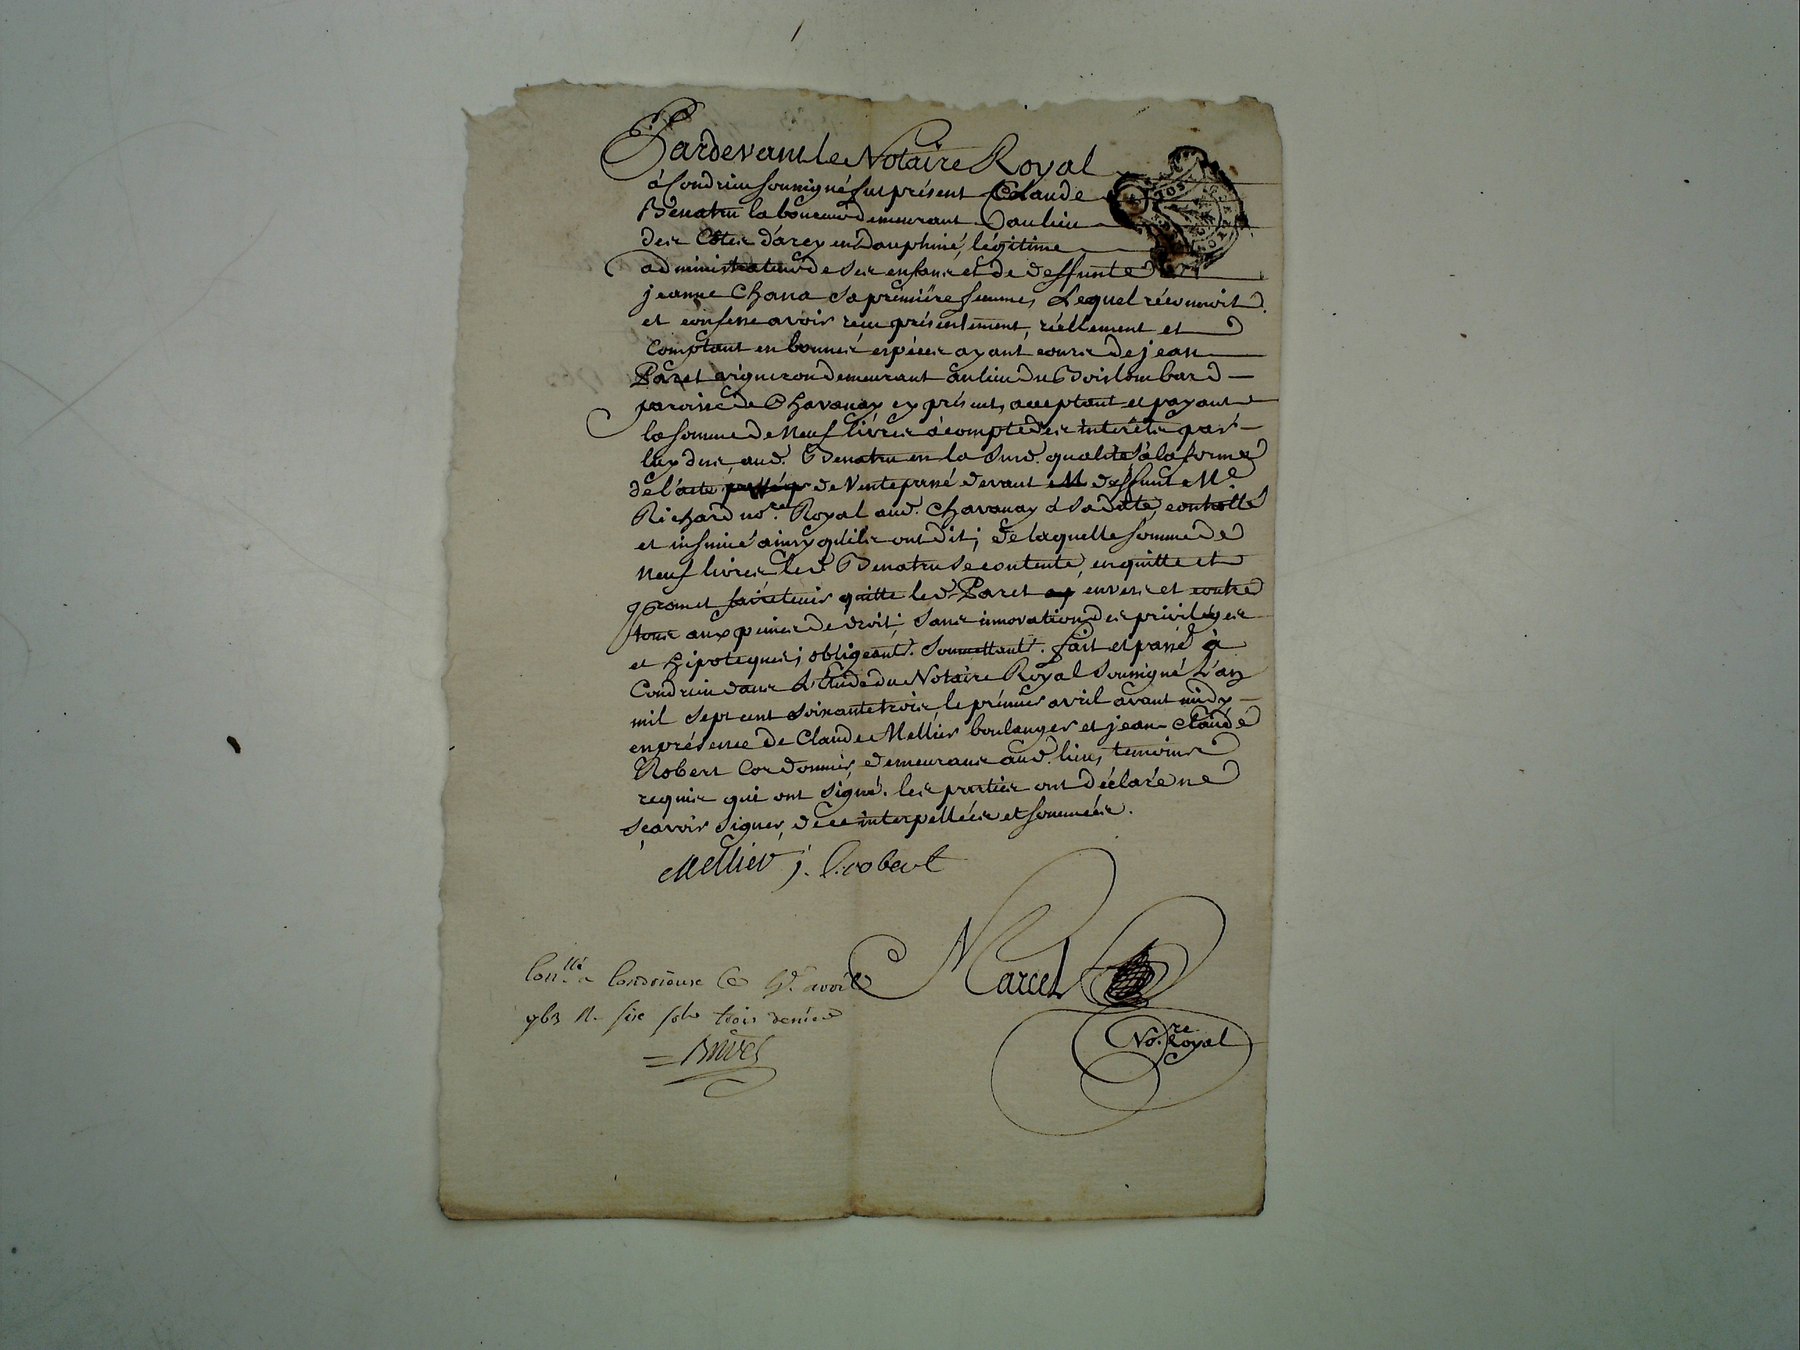 Pardevant le Notaire Royal
à Condrieu soussigné fut présent Claude
Benatru laboureur demeurant au lieu
des Côtes d'arey en dauphiné, légitime
administrateur de ses enfans et de deffunte
jeanne Chana sa première femme, Lequel réconnoit
et confesse avoir reçu présentement, réellement et
comptant en bonnes espèces ayant cours de jean
Paret vigneron demeurant au lieu du Boislombard
paroisse de Chavanay cy présent, acceptant et payant
la somme de Neuf livres à compte des intérêts par
luy dus aud. Benatru en la susd. qualité à la forme
de l'acte de Vente passé devant deffunt Me
Richard nore. Royal aud. Chavanay à sa date, controllé
et insinué ainsy qu'ils ont dit; de laquelle somme de
Neuf livres led. Benatru se contente, en quitte et
promet faire tenir quitte led. Paret envers et contre
tous aux peines de droit, sans innovation des privilèges
et hipoteques; obligeant. soumettant. fait et passé à
Condrieu dans L'Etude du Notaire Royal soussigné L'an
mil sept cent soixante trois, le prémier avril avant midy
en présence de Claude Mellier boulanger et jean Claude
Robert Cordonnier, demeurans aud. lieu, temoins
requis qui ont signé. les parties ont déclaré ne
sçavoir signer, de ce interpellées et sommées.
Mellier j. C. robert
Marcel
Nore. Royal
Conllé. a Condrieux Ce avril
763 R. six sols trois deniers